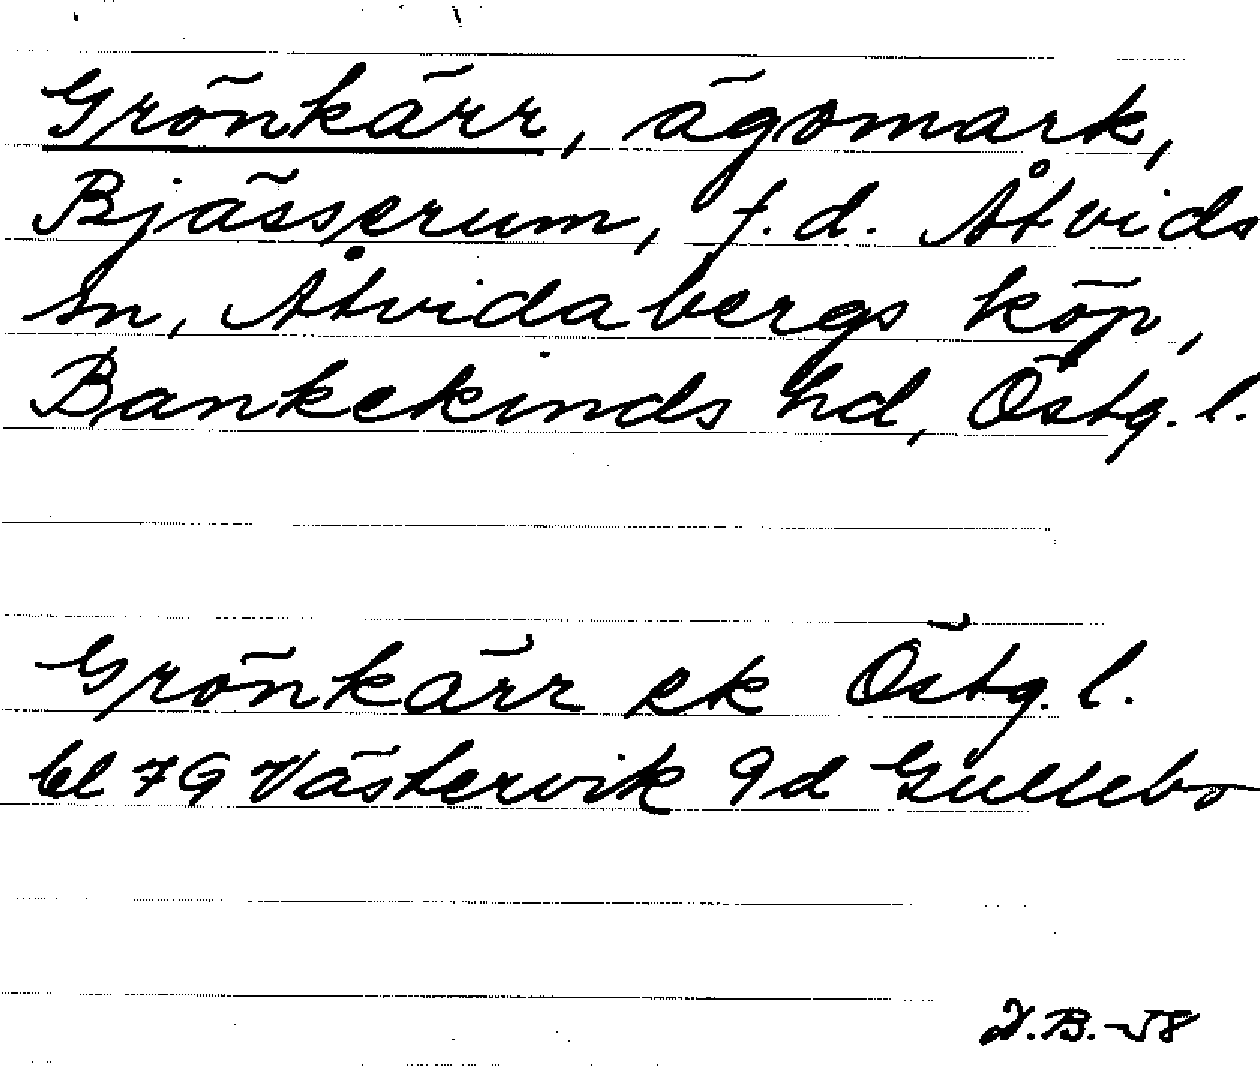 Grönkärr, ägomark,
Bjässerum, f.d. Åtvids
sn, Åtvidabergs köp,
Bankekinds hd, Östg. l.
Grönkärr ek Östg. l.
bl 7G Västervik 9d Gullebo
V.B.-58